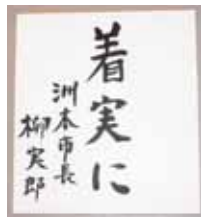 着実に
洲本市長
柳実郎